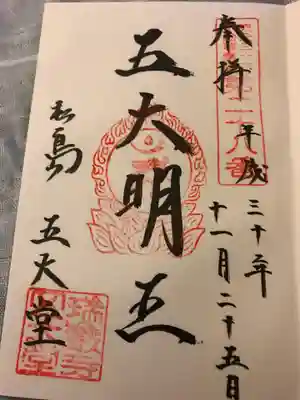 奉拝
平成三十年
十一月二十五日
五大明王
松島 五大堂
瑞巌寺